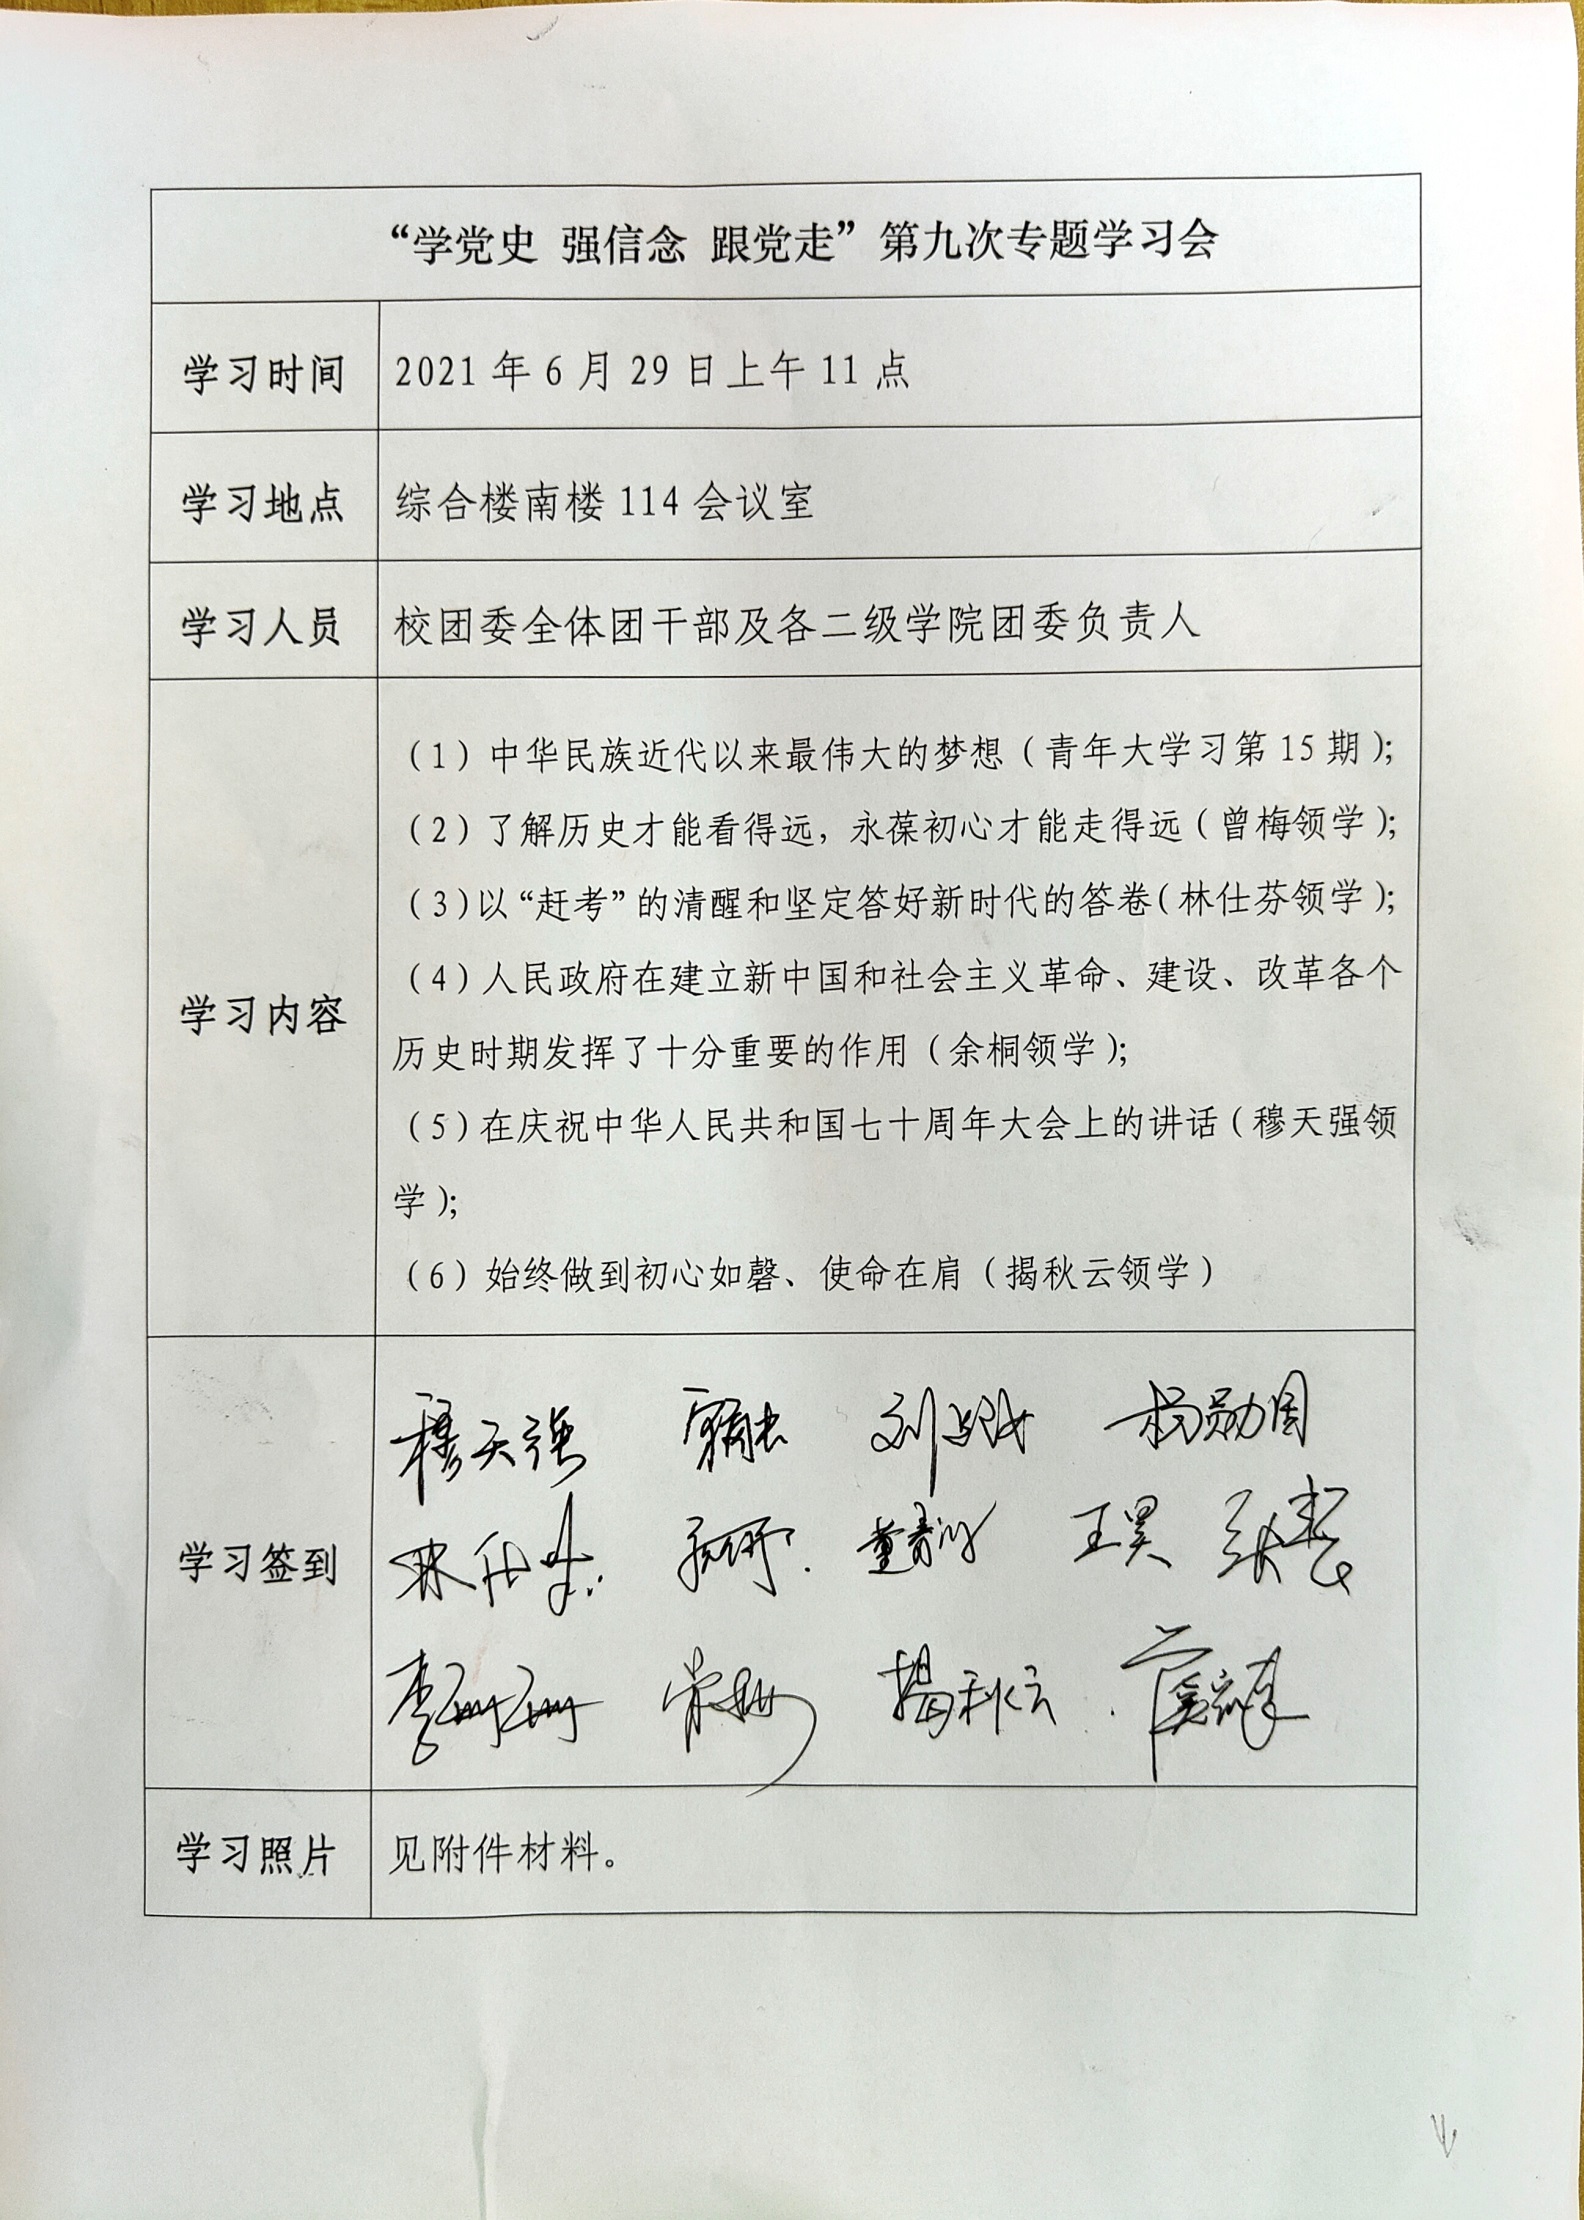 “学党史 强信念 跟党走”第九次专题学习会
学习时间
2021 年 6 月 29 日上午 11 点
学习地点
综合楼南楼 114 会议室
学习人员
校团委全体团干部及各二级学院团委负责人
学习内容
（1）中华民族近代以来最伟大的梦想（青年大学习第 15 期）；
（2）了解历史才能看得远，永葆初心才能走得远（曾梅领学）；
（3）以“赶考”的清醒和坚定答好新时代的答卷（林仕芬领学）；
（4）人民政府在建立新中国和社会主义革命、建设、改革各个
历史时期发挥了十分重要的作用（余桐领学）；
（5）在庆祝中华人民共和国七十周年大会上的讲话（穆天强领
学）；
（6）始终做到初心如磬、使命在肩（揭秋云领学）
学习签到
穆天强 杨勋国
林仕芬 王昊
李珊珊 揭秋云
学习照片
见附件材料。